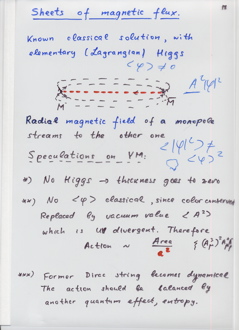 Sheets of magnetic flux.
Known classical solution, with
elementary (Lagrangian) Higgs
<φ> ≠ 0
A²|φ|²
M
M̄
Radial magnetic field of a monopole
streams to the other one
<|φ|²> ≠
<φ>²
Speculations on YM:
*) No Higgs → thickness goes to zero
**) No <φ> classical, since color conserved
Replaced by vacuum value <A²>
which is UV divergent. Therefore
Action ~ Area / a²
***) Former Dirac string becomes dynamical
The action should be balanced by
another quantum effect, entropy.